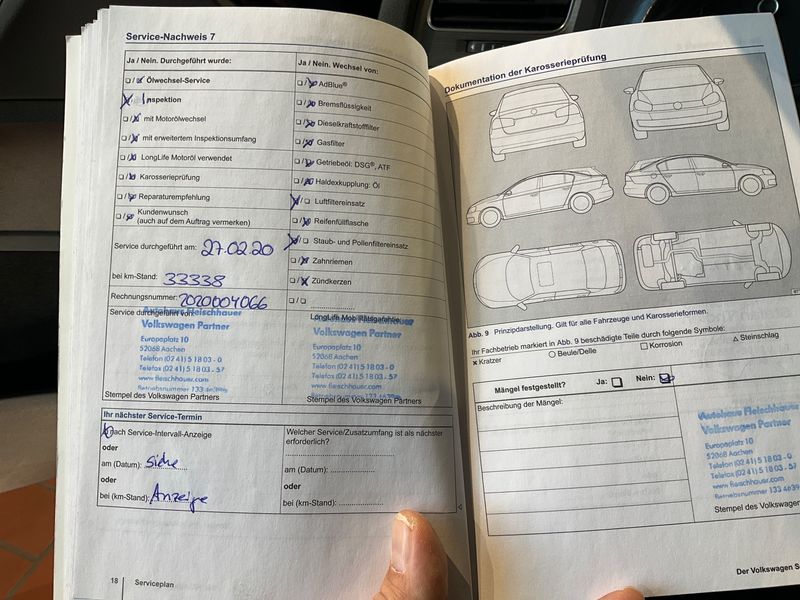 Service-Nachweis 7
Ja / Nein. Durchgeführt wurde:
❏ / ❏ Ölwechsel-Service
Inspektion
❏ / ❏ mit Motorölwechsel
❏ / ❏ mit erweitertem Inspektionsumfang
❏ / ❏ LongLife Motoröl verwendet
❏ / ❏ Karosserieprüfung
❏ / ❏ Reparaturempfehlung
❏ / ❏ Kundenwunsch
(auch auf dem Auftrag vermerken)
Service durchgeführt am: 27.02.20
bei km-Stand: 33338
Rechnungsnummer: 2020004066
Service durchgeführt von:
Autohaus Fleischhauer
Volkswagen Partner
Europaplatz 10
52068 Aachen
Telefon (02 41) 5 18 03 - 0
Telefax (02 41) 5 18 03 - 57
www.fleischhauer.com
Betriebsnummer 133
Stempel des Volkswagen Partners
Ja / Nein. Wechsel von:
❏ / ❏ AdBlue®
❏ / ❏ Bremsflüssigkeit
❏ / ❏ Dieselkraftstofffilter
❏ / ❏ Gasfilter
❏ / ❏ Getriebeöl: DSG®, ATF
❏ / ❏ Haldexkupplung: Öl
❏ / ❏ Luftfiltereinsatz
❏ / ❏ Reifenfüllflasche
❏ / ❏ Staub- und Pollenfiltereinsatz
❏ / ❏ Zahnriemen
❏ / ❏ Zündkerzen
❏ / ❏ ....................
LongLife Mobilitätsgarantie:
Volkswagen Partner
Europaplatz 10
52068 Aachen
Telefon (02 41) 5 18 03 - 0
Telefax (02 41) 5 18 03 - 57
www.fleischhauer.com
Betriebsnummer 133 4639
Stempel des Volkswagen Partners
Ihr nächster Service-Termin
nach Service-Intervall-Anzeige
oder
am (Datum): siehe
oder
bei (km-Stand): Anzeige
Welcher Service/Zusatzumfang ist als nächster
erforderlich?
am (Datum): ....................
oder
bei (km-Stand): ....................
18 Serviceplan
Dokumentation der Karosserieprüfung
Abb. 9 Prinzipdarstellung. Gilt für alle Fahrzeuge und Karosserieformen.
Ihr Fachbetrieb markiert in Abb. 9 beschädigte Teile durch folgende Symbole:
× Kratzer ○ Beule/Delle □ Korrosion △ Steinschlag
Mängel festgestellt? Ja: ❏ Nein: ❏
Beschreibung der Mängel:
Autohaus Fleischhauer
Volkswagen Partner
Europaplatz 10
52068 Aachen
Telefon (02 41) 5 18 03 - 0
Telefax (02 41) 5 18 03 - 57
www.fleischhauer.com
Betriebsnummer 133 4639
Stempel des Volkswagen
Der Volkswagen S